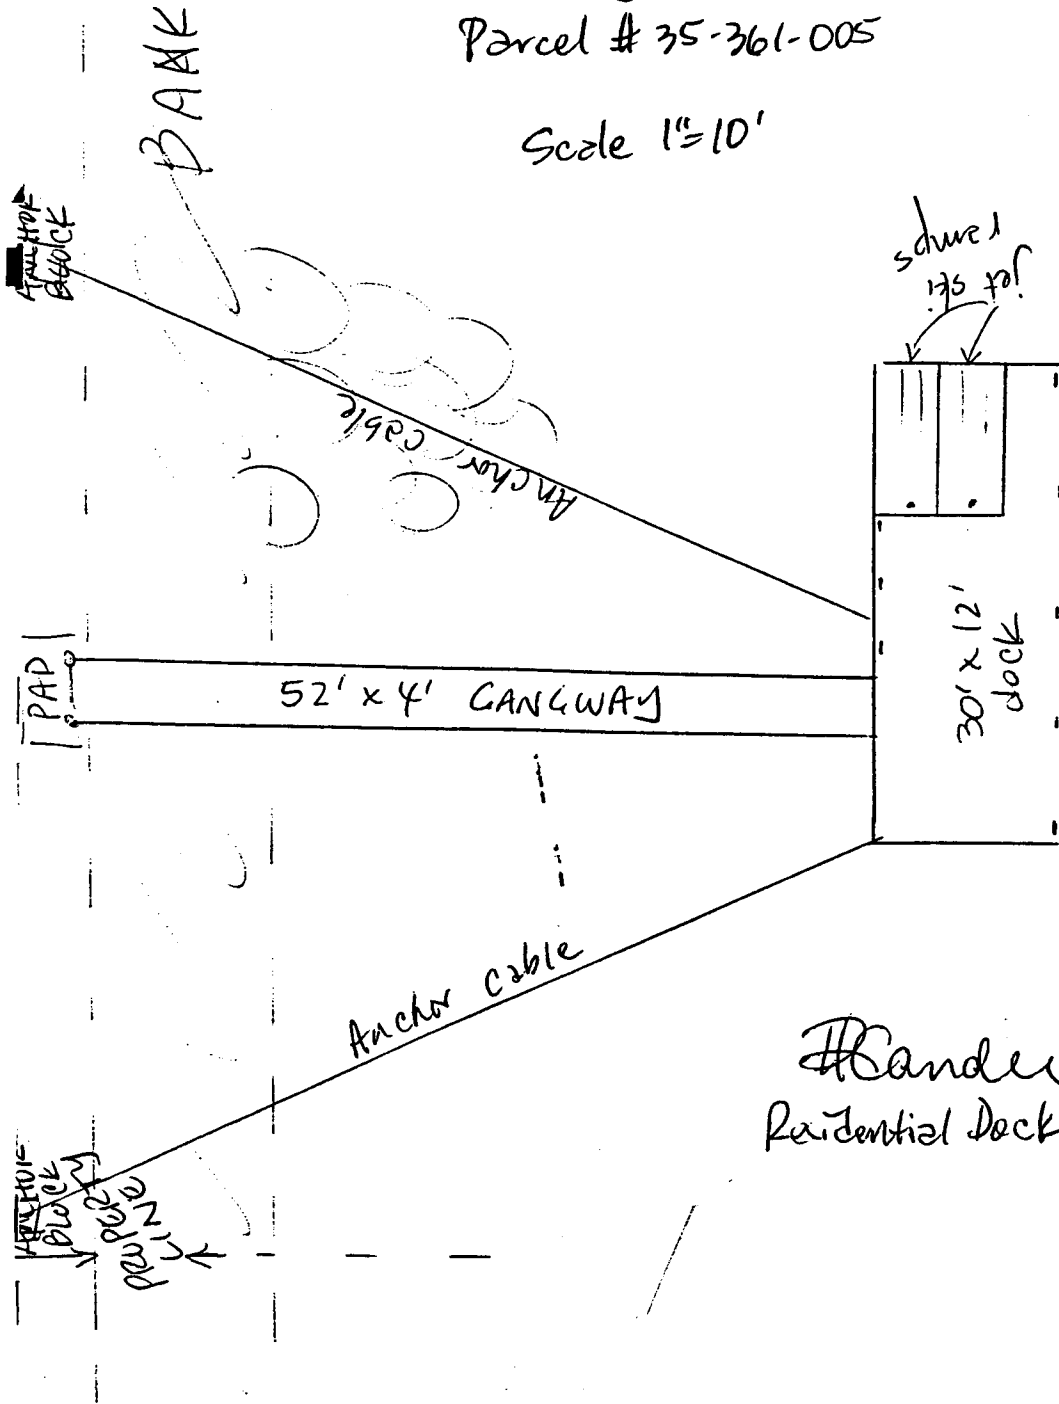 Parcel # 35-361-005
Scale 1"=10'
BANK
ANCHOR
BLOCK
jet ski
ramps
Anchor Cable
PAD
52' x 4' GANGWAY
30' x 12'
dock
Anchor Cable
ANCHOR
BLOCK
PROPERTY
LINE
Residential Dock